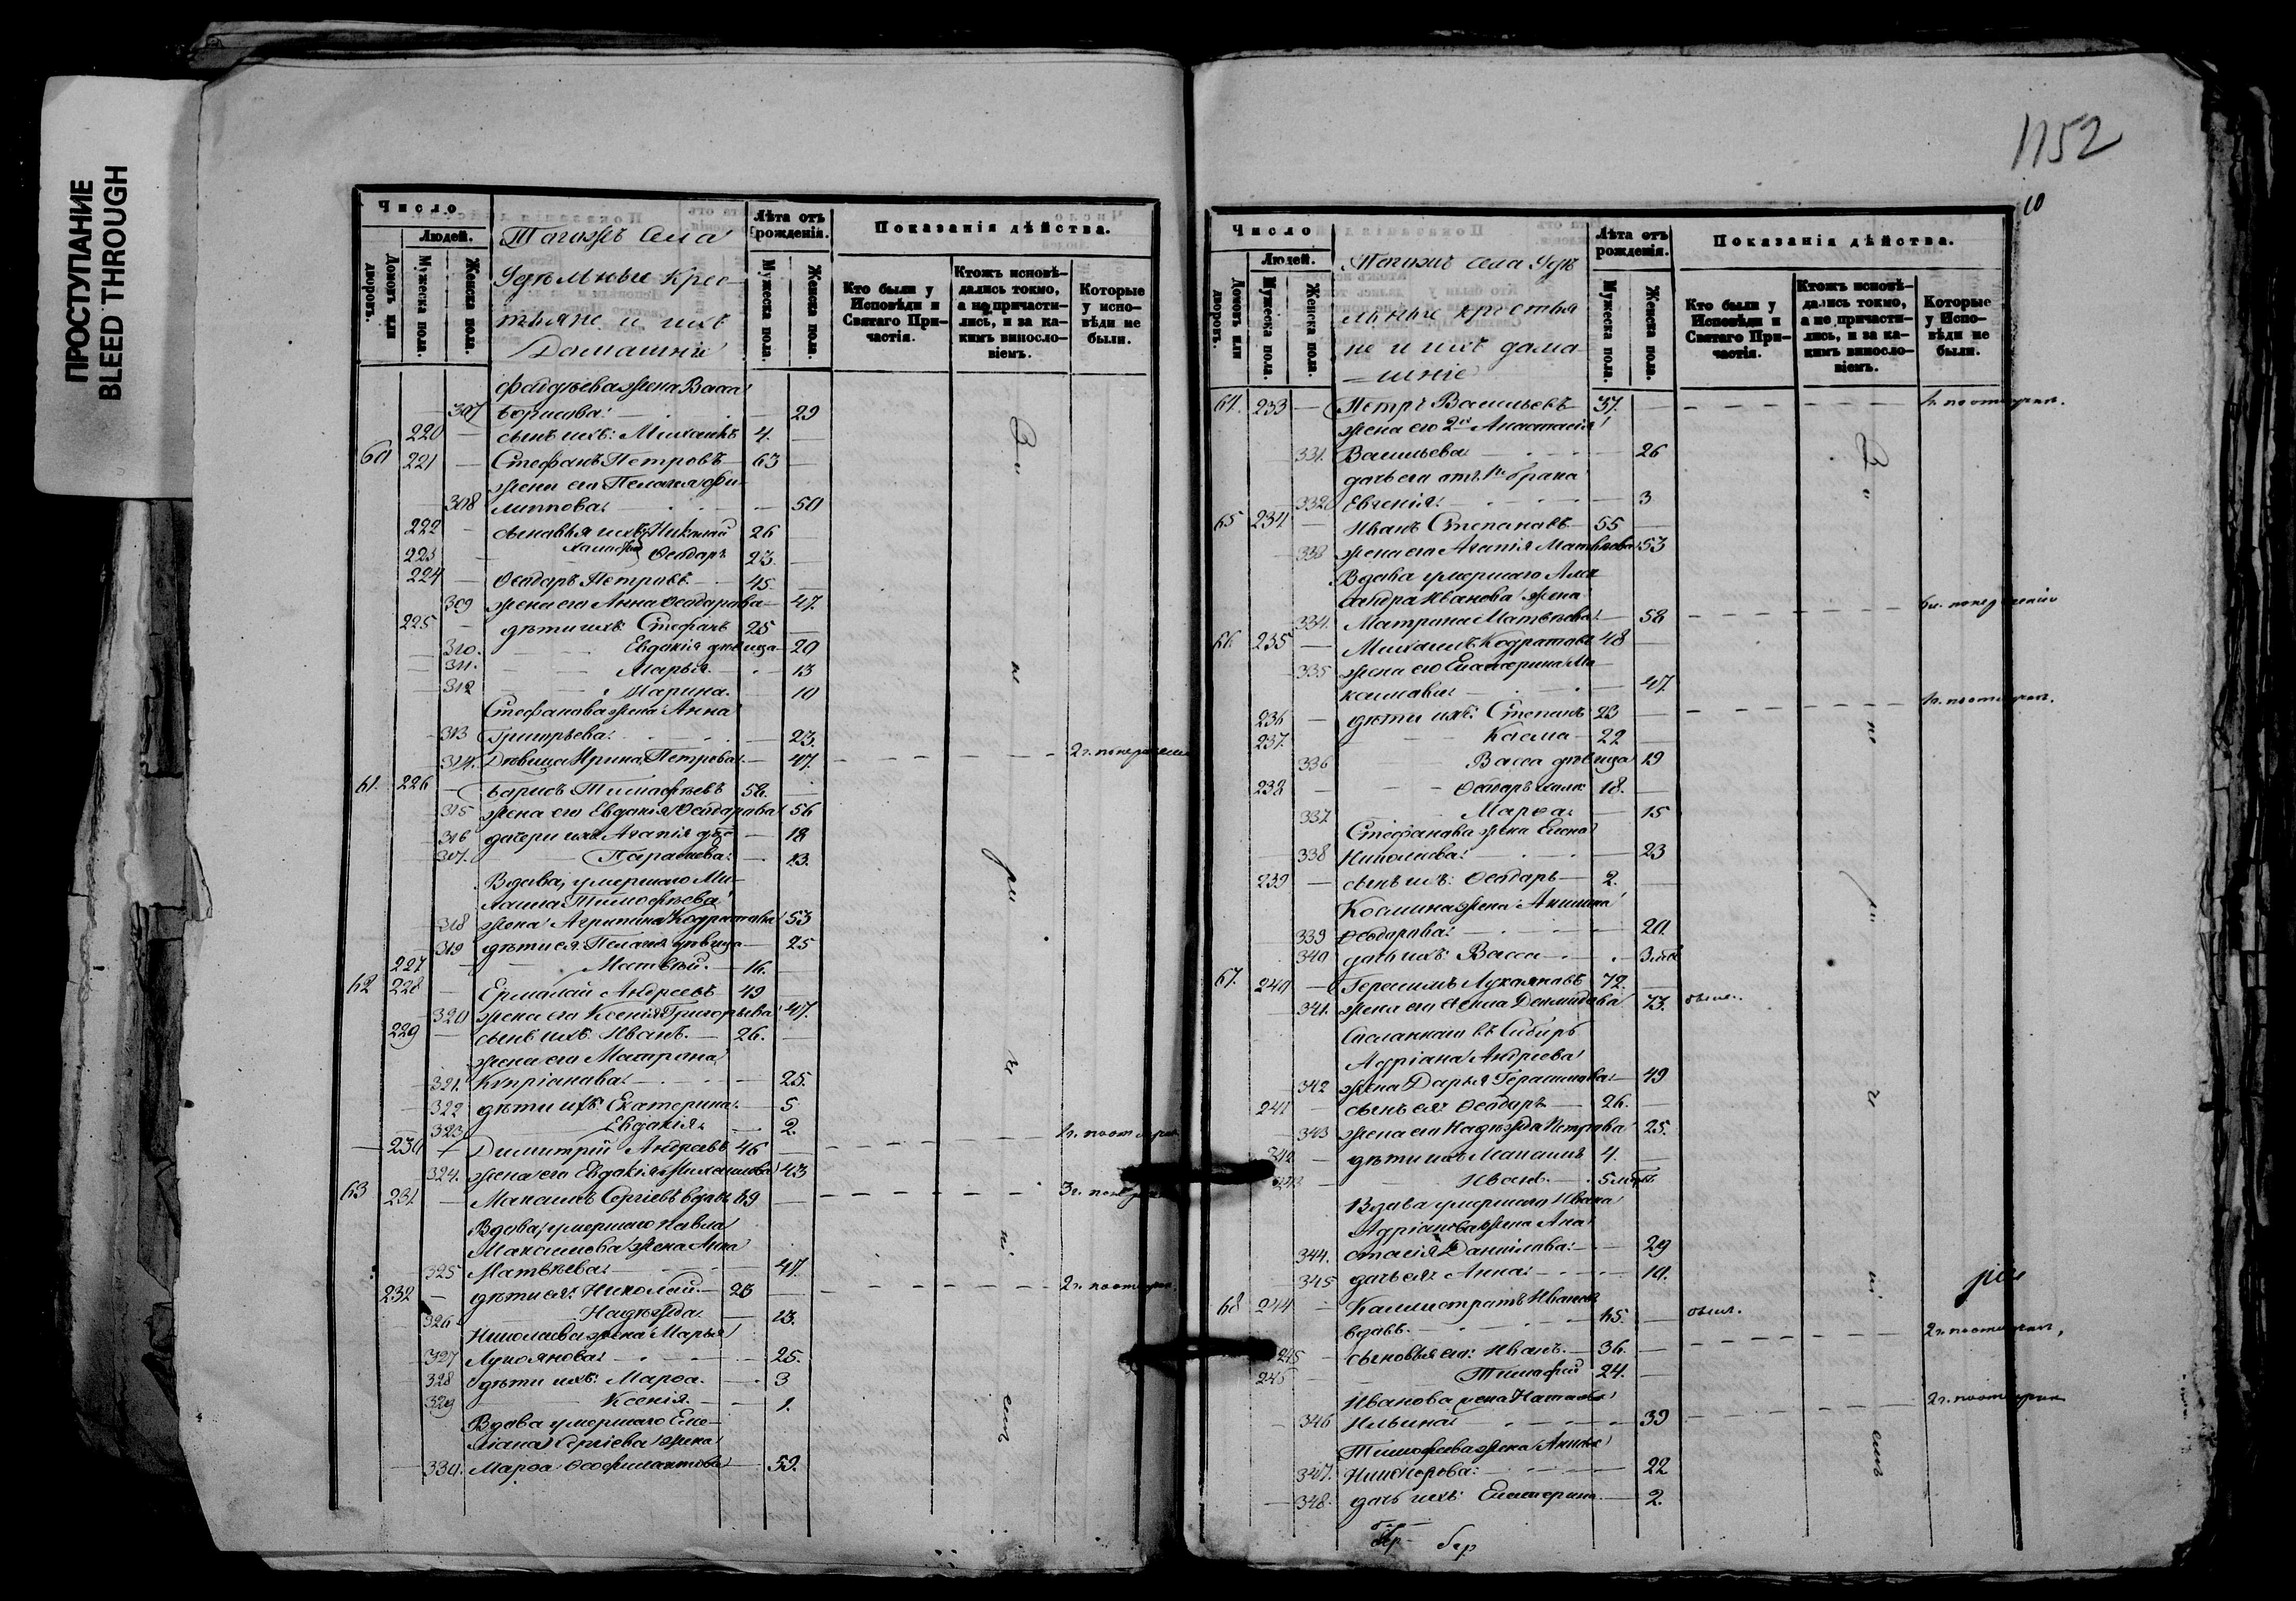 ПРОСТУПАНИЕ
BLEED THROUGH
Число
Людей.
Домовъ или дворовъ.
Мужеска пола.
Женска пола.
Тогожъ Села
Удѣльные Крес-
тьяне и ихъ
Домашніе
Лѣта отъ рожденія.
Мужеска пола.
Женска пола.
Показанія дѣйства.
Кто были у Исповѣди и Святаго Причастія.
Ктожъ исповѣдались токмо, а не причастились, и за какимъ винословіемъ.
Которые у исповѣди не были.
307 Борисова 29
220 сынъ ихъ: Михаилъ 4.
60 221 Стефанъ Петровъ 63
жена его Пелагея Фи-
308 липпова 50
222 сыновья ихъ: Николай 26
223 Ѳеодоръ 23.
224 Ѳеодоръ Петровъ 45
309 жена его Анна Ѳеодорова 47.
225 дѣти ихъ: Стефанъ 25
310. Евдокія дѣвица 20
311. Марья 13
312 Марина 10
Стефанова жена Анна
313 Григорьева 23.
314. Дѣвица Ирина Петрова 47.
61. 226 Борисъ Тимофѣевъ 58.
315 жена его Евдокія Ѳеодорова 56
316 дочери ихъ Агапія 18
317. Параскева 13.
Вдова, умершаго Ми-
хаила Тимофѣева
318 жена Агрипина Кодратова 53
319 дѣти ея: Пелагея дѣвица 25
227 Матвѣй 16.
62 228 Ермолай Андреевъ 49
320 жена его Ксенія Григорьева 47.
229 сынъ ихъ: Иванъ 26.
жена его Матрона
321. Кипріанова 25.
322 дѣти ихъ: Екатерина 5
323 Евдокія 2.
230 Димитрій Андреевъ 46
324. жена его Евдокія Михаилова 43
63 231 Максимъ Сергіевъ вдовъ 69
Вдова, умершаго Павла
Максимова жена Анна
325 Матвѣева 47.
232 дѣти ея: Николай 26
326 Надежда 23.
Николаева жена Марья
327 Лукоянова 25.
328 дѣти ихъ: Марѳа 3
329 Ксенія 1.
Вдова умершаго Еме-
ліана Сергіева жена
330. Марѳа Ѳеофилактова 59.
1152
10
Число
Людей.
Домовъ или дворовъ.
Мужеска пола.
Женска пола.
Тогожъ села Удѣ
льные крестья
не и ихъ дома
шніе
Лѣта отъ рожденія.
Мужеска пола.
Женска пола.
Показанія дѣйства.
Кто были у Исповѣди и Святаго Причастія.
Ктожъ исповѣдались токмо, а не причастились, и за какимъ винословіемъ.
Которые у Исповѣди не были.
64. 233 Петръ Васильевъ 37.
жена его 2я Анастасія
331. Васильева 26
дочь его отъ 1го брака
332 Евгенія 3
65 234 Иванъ Степановъ 55
333 жена его Агапія Матвѣева 53
Вдова умершаго Алек
сандра Иванова жена
334. Матрона Матвѣева 58
66. 235 Михаилъ Кодратовъ 48
335 жена его Екатерина Ма-
47.
236 дѣти ихъ: Степанъ 23
237. Косма 22
336 Васса дѣвица 19
238 Ѳеодоръ 18.
337 Марѳа 15
Стефанова жена Елена
338 Николаева 23
239 сынъ ихъ: Ѳеодоръ 2.
Космина жена Акилина
339 Ѳеодорова 20.
340 дочь ихъ: Васса
67. 240 Герасимъ Лукояновъ 72.
341. жена его Демидова 73.
Сосланнаго въ Сибирь
Адріана Андреева
342 жена Дарья Герасимова 49
241 сынъ ея: Ѳеодоръ 26.
343 жена его Надежда Петрова 25.
242 дѣти ихъ Максимъ 4.
243 Иванъ
Вдова умершаго Ивана
Адріанова жена Ана
344. стасія Даниилова 29
345 дочь ея: Анна 10.
68 244 Каллистратъ Ивановъ
вдовъ. 65.
245 сыновья его: Иванъ 36.
246 Тимофей 24.
Иванова жена Наталья
346 Ильина 39
347. Никифорова 22
348. дочь ихъ: Екатерина 2.